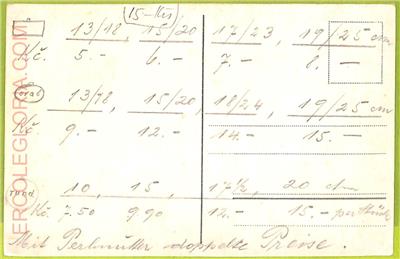 (15-Kčs)
13/18, 15/20, 17/23, 19/25 cm
Kč. 5.- 6.- 7.- 8.-
oval 13/18, 15/20, 18/24, 19/25 cm
Kč. 9.- 12.- 14.- 15.-
rond 10, 15, 17½, 20 cm
Kč. 7.50 9.90 12.- 15.- per Stück
Mit Perlmutter doppelte Preise.
ERCOLEGLORIA.COM